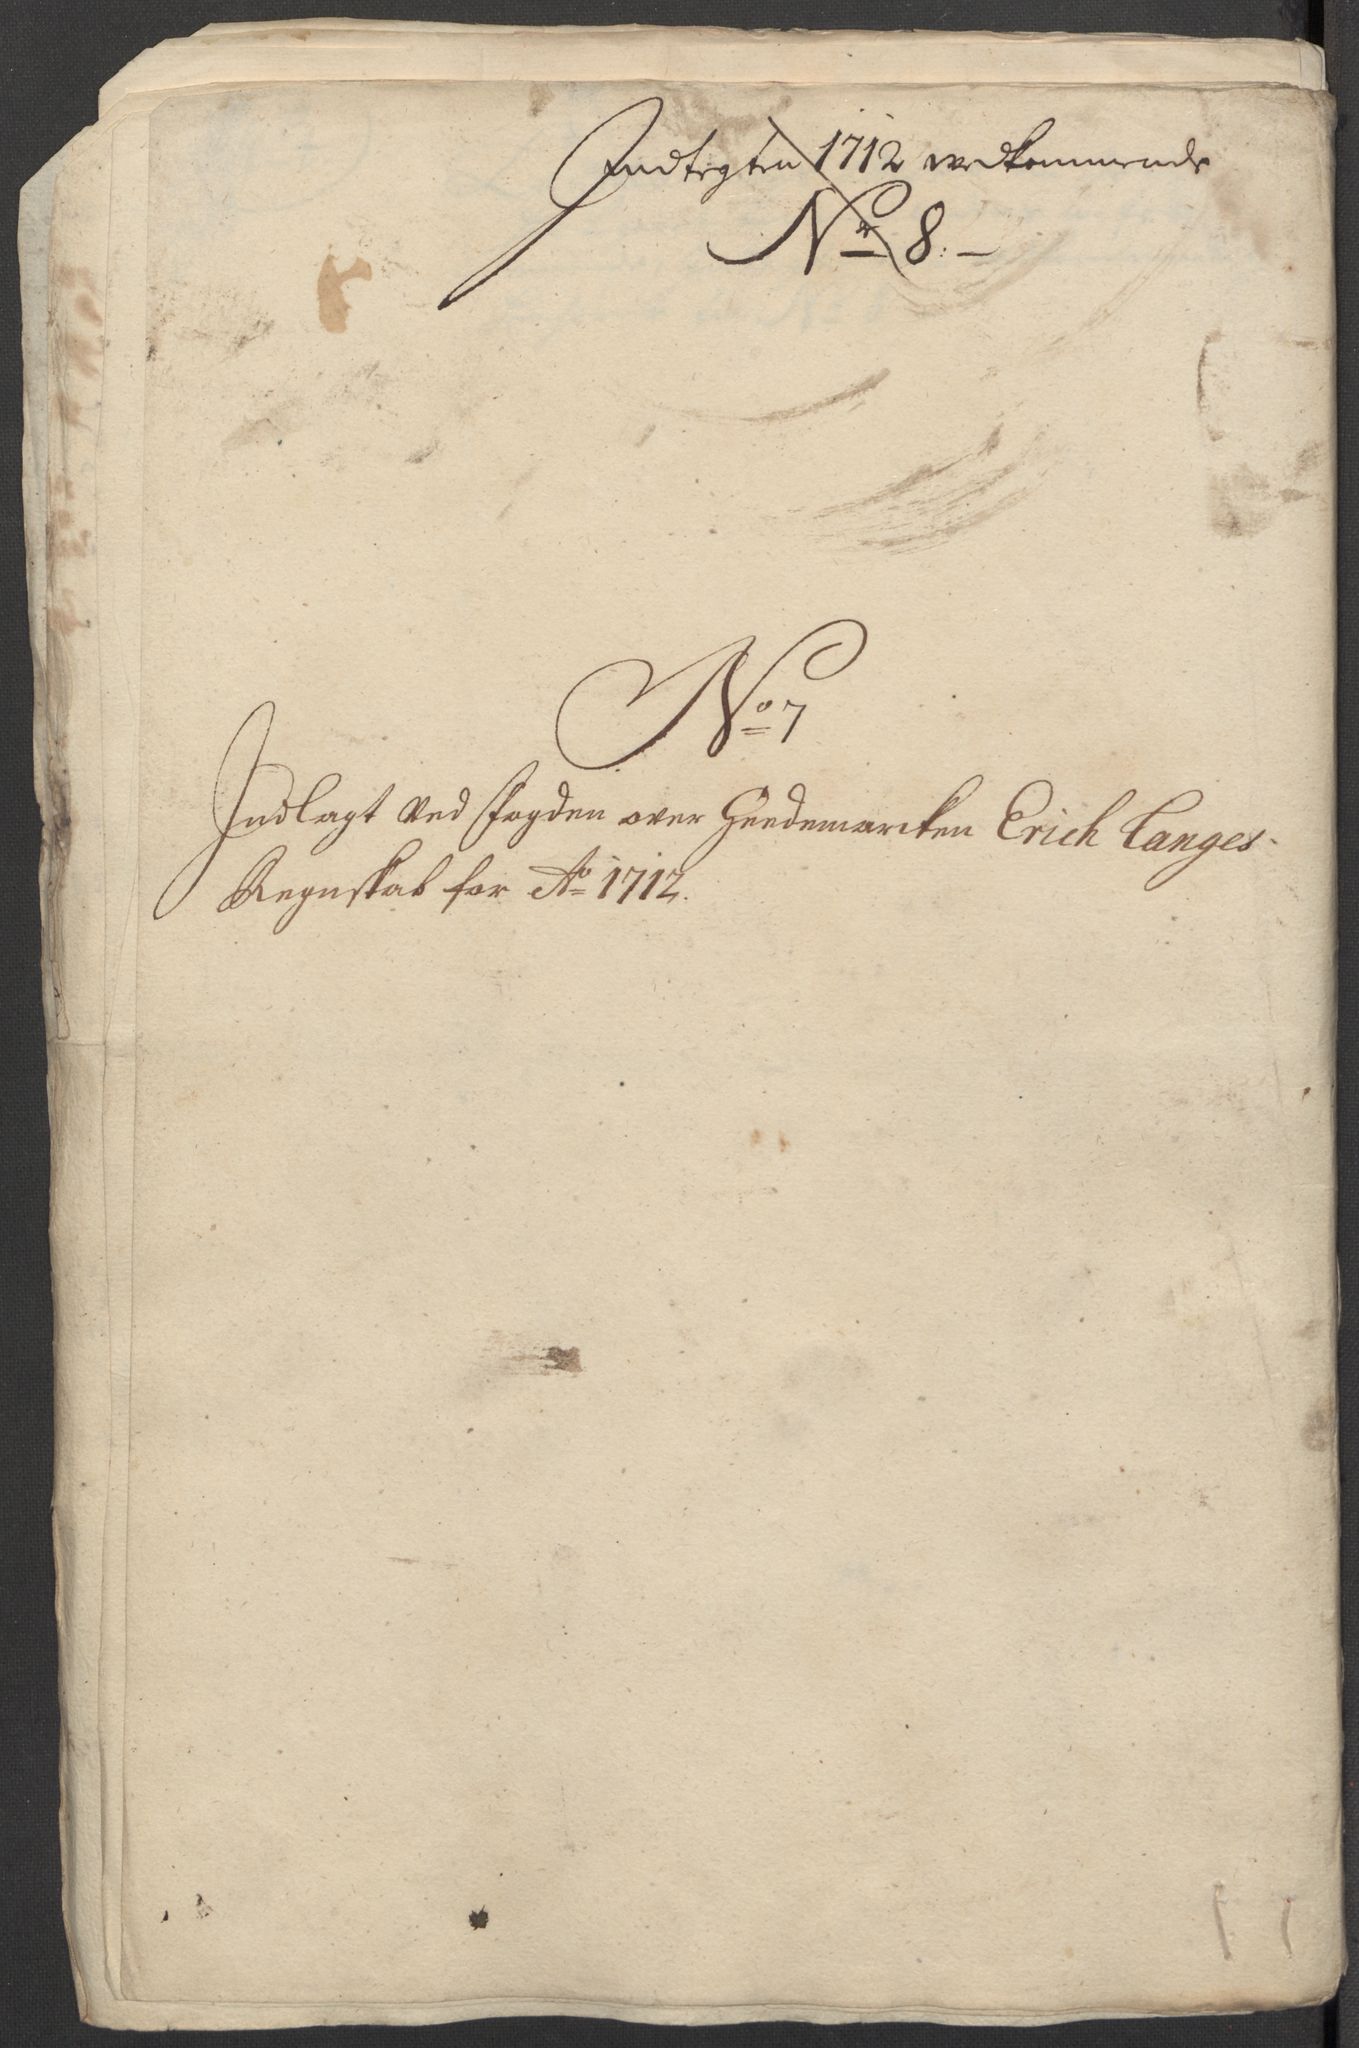 Indtegten 1712 vedkommende
No 8.
No 7
Indlagt ved fogden over Heedemarcken Erich Langes
Regnskab for Ao 1712.